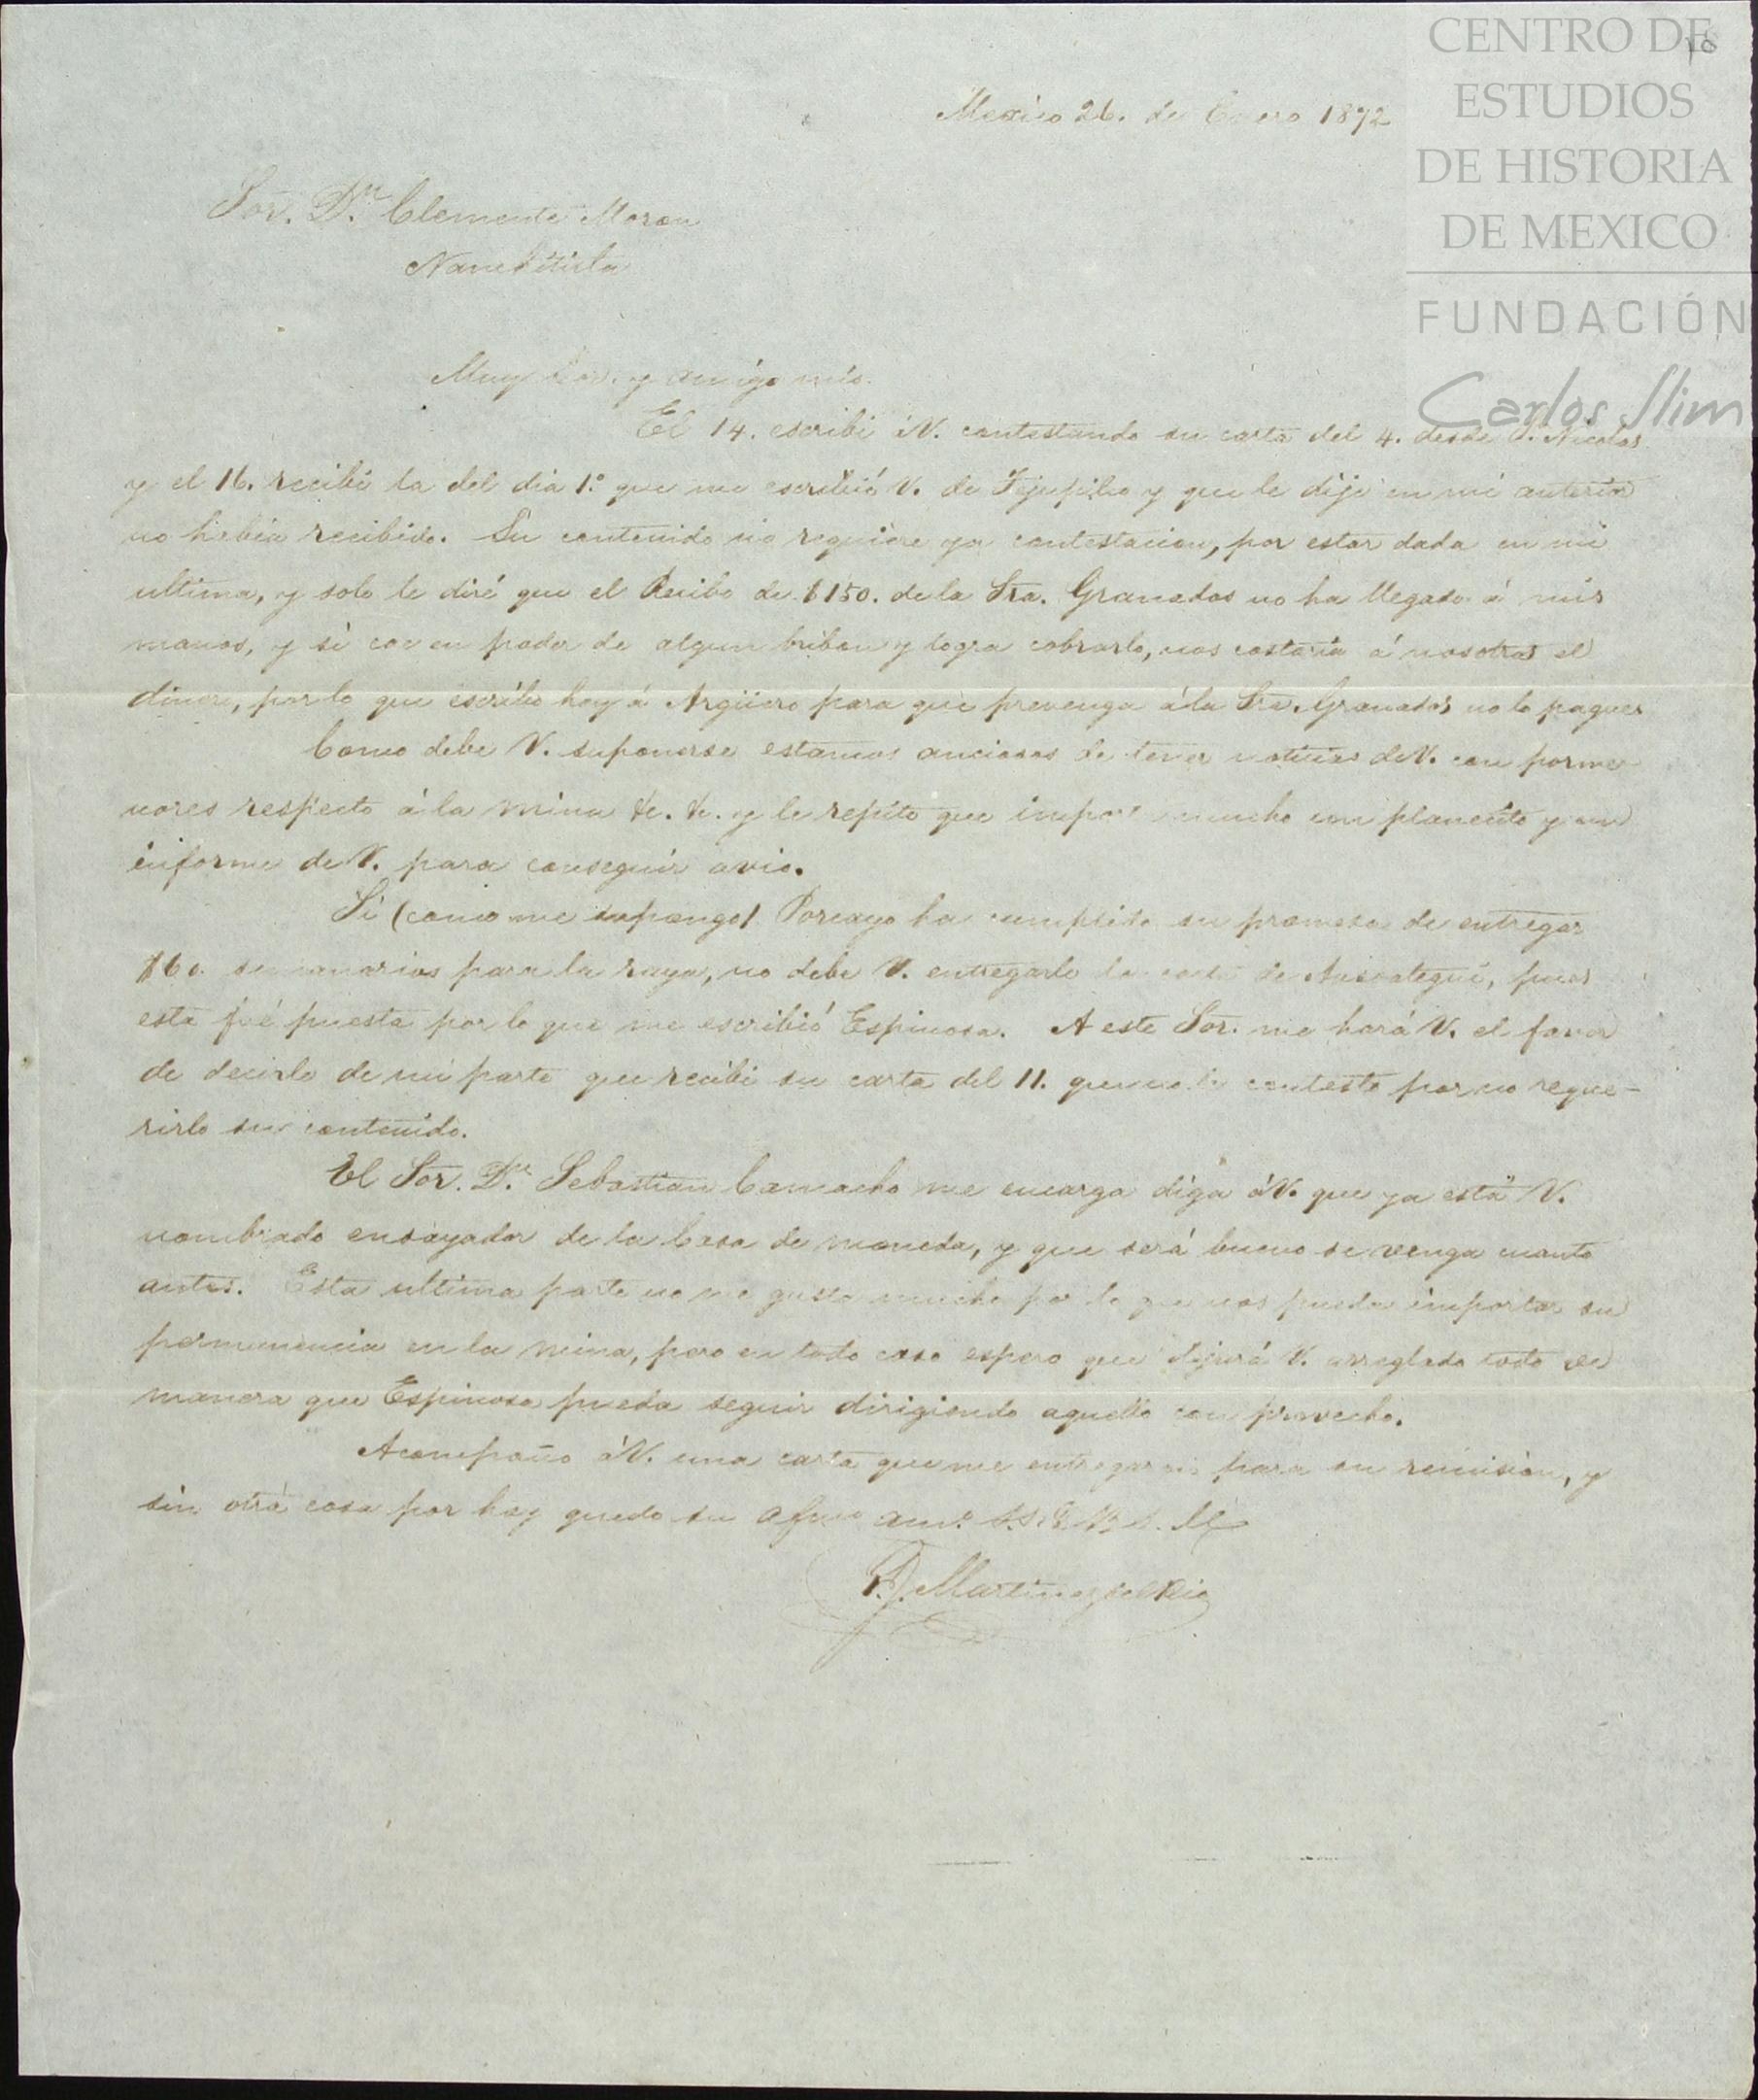 CENTRO DE
ESTUDIOS
DE HISTORIA
DE MEXICO
FUNDACIÓN
Carlos Slim
Mexico 26. de Enero 1872
Sor. Dn. Clemente Moron
Nanchititla
Muy Sor. y amigo mio.
El 14. escribi á V. contestando su carta del 4. desde S. Nicolas
y el 16. recibi la del dia 1.º que me escribió V. de Tejupilco y que le dije en mi anterior
no habia recibido. Su contenido no requiere ya contestacion, por estar dada en mi
ultima, y solo le diré que el Recibo de $150. de la Sra. Granados no ha llegado á mis
manos, y si cae en poder de algun bribon y logra cobrarlo, nos costaria á nosotros el
dinero, por lo que escribo hoy á Argüero para que prevenga á la Sra. Granados no lo pagues
Como debe V. suponerse estamos anciosos de tener noticias de V. con porme-
nores respecto á la mina &c. &c. y le repito que mucho un planecito y un
informe de V. para conseguir avio.
Si (como me supongo) Porcayo ha cumplido su promesa de entregar
$60. semanarios para la raya, no debe V. entregarle la carta de Ansoategui, pues
esta fué puesta por lo que me escribió Espinosa. A este Sor. me hará V. el favor
de decirle de mi parte que recibi su carta del 11. que no le contesto por no reque-
rirlo su contenido.
El Sor. Dn. Sebastian Camacho me encarga diga á V. que ya está V.
nombrado ensayador de la Casa de moneda, y que será bueno se venga cuanto
antes. Esta ultima parte no me gusta mucho por lo que nos pueda importar su
permanencia en la mina, pero en todo caso espero que dejará V. arreglado todo de
manera que Espinosa pueda seguir dirigiendo aquello con provecho.
Acompaño á V. una carta que me entregaron para su remision, y
sin otra cosa por hoy quedo su afmo amo. S. S. Q. B. S. M.
P. Martinez del Rio